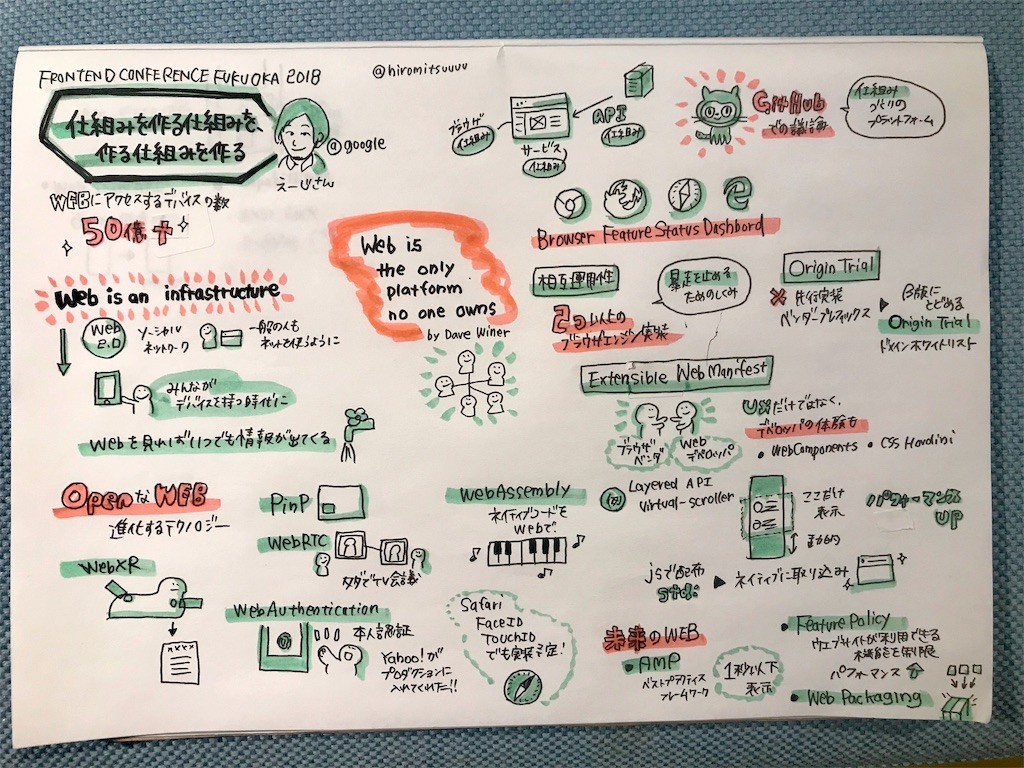 FRONTEND CONFERENCE FUKUOKA 2018
@hiromitsuuuu
仕組みを作る仕組みを、
作る仕組みを作る
@google
えーじさん
WEBにアクセスするデバイスの数
50億+
Web is an infrastructure
Web
2.0
ソーシャル
ネットワーク
一般の人も
ネットを使うように
みんなが
デバイスを持つ時代に
Webを見ればいつでも情報が出てくる
Web is
the only
platform
no one owns
by Dave Winer
ブラウザ
仕組み
サービス
仕組み
API
仕組み
GitHub
での議論
仕組み
づくりの
プラットフォーム
Browser Feature Status Dashbord
相互運用性
2つ以上の
ブラウザエンジン実装
暴走を止める
ためのしくみ
Origin Trial
先行実装
ベンダープレフィックス
β版に
とどめる
Origin Trial
ドメインホワイトリスト
Extensible Web Manifest
ブラウザ
ベンダ
Web
デベロッパ
UXだけではなく、
デベロッパの体験も
• WebComponents
• CSS Houdini
OpenなWEB
進化するテクノロジー
WebXR
PinP
WebRTC
タダでTV会議
WebAuthentication
本人認証
Yahoo!が
プロダクションに
入れてくれた!!
WebAssembly
ネイティブコードを
Webで
Safari
FaceID
TouchID
でも実装予定!
Layered API
virtual-scroller
ここだけ
表示
動的
パフォーマンス
UP
jsで配布
std:
ネイティブに取り込み
未来のWEB
• AMP
ベストプラクティス
フレームワーク
1秒以下
表示
• Feature Policy
ウェブサイトが利用できる
機能を制限
パフォーマンス
• Web Packaging